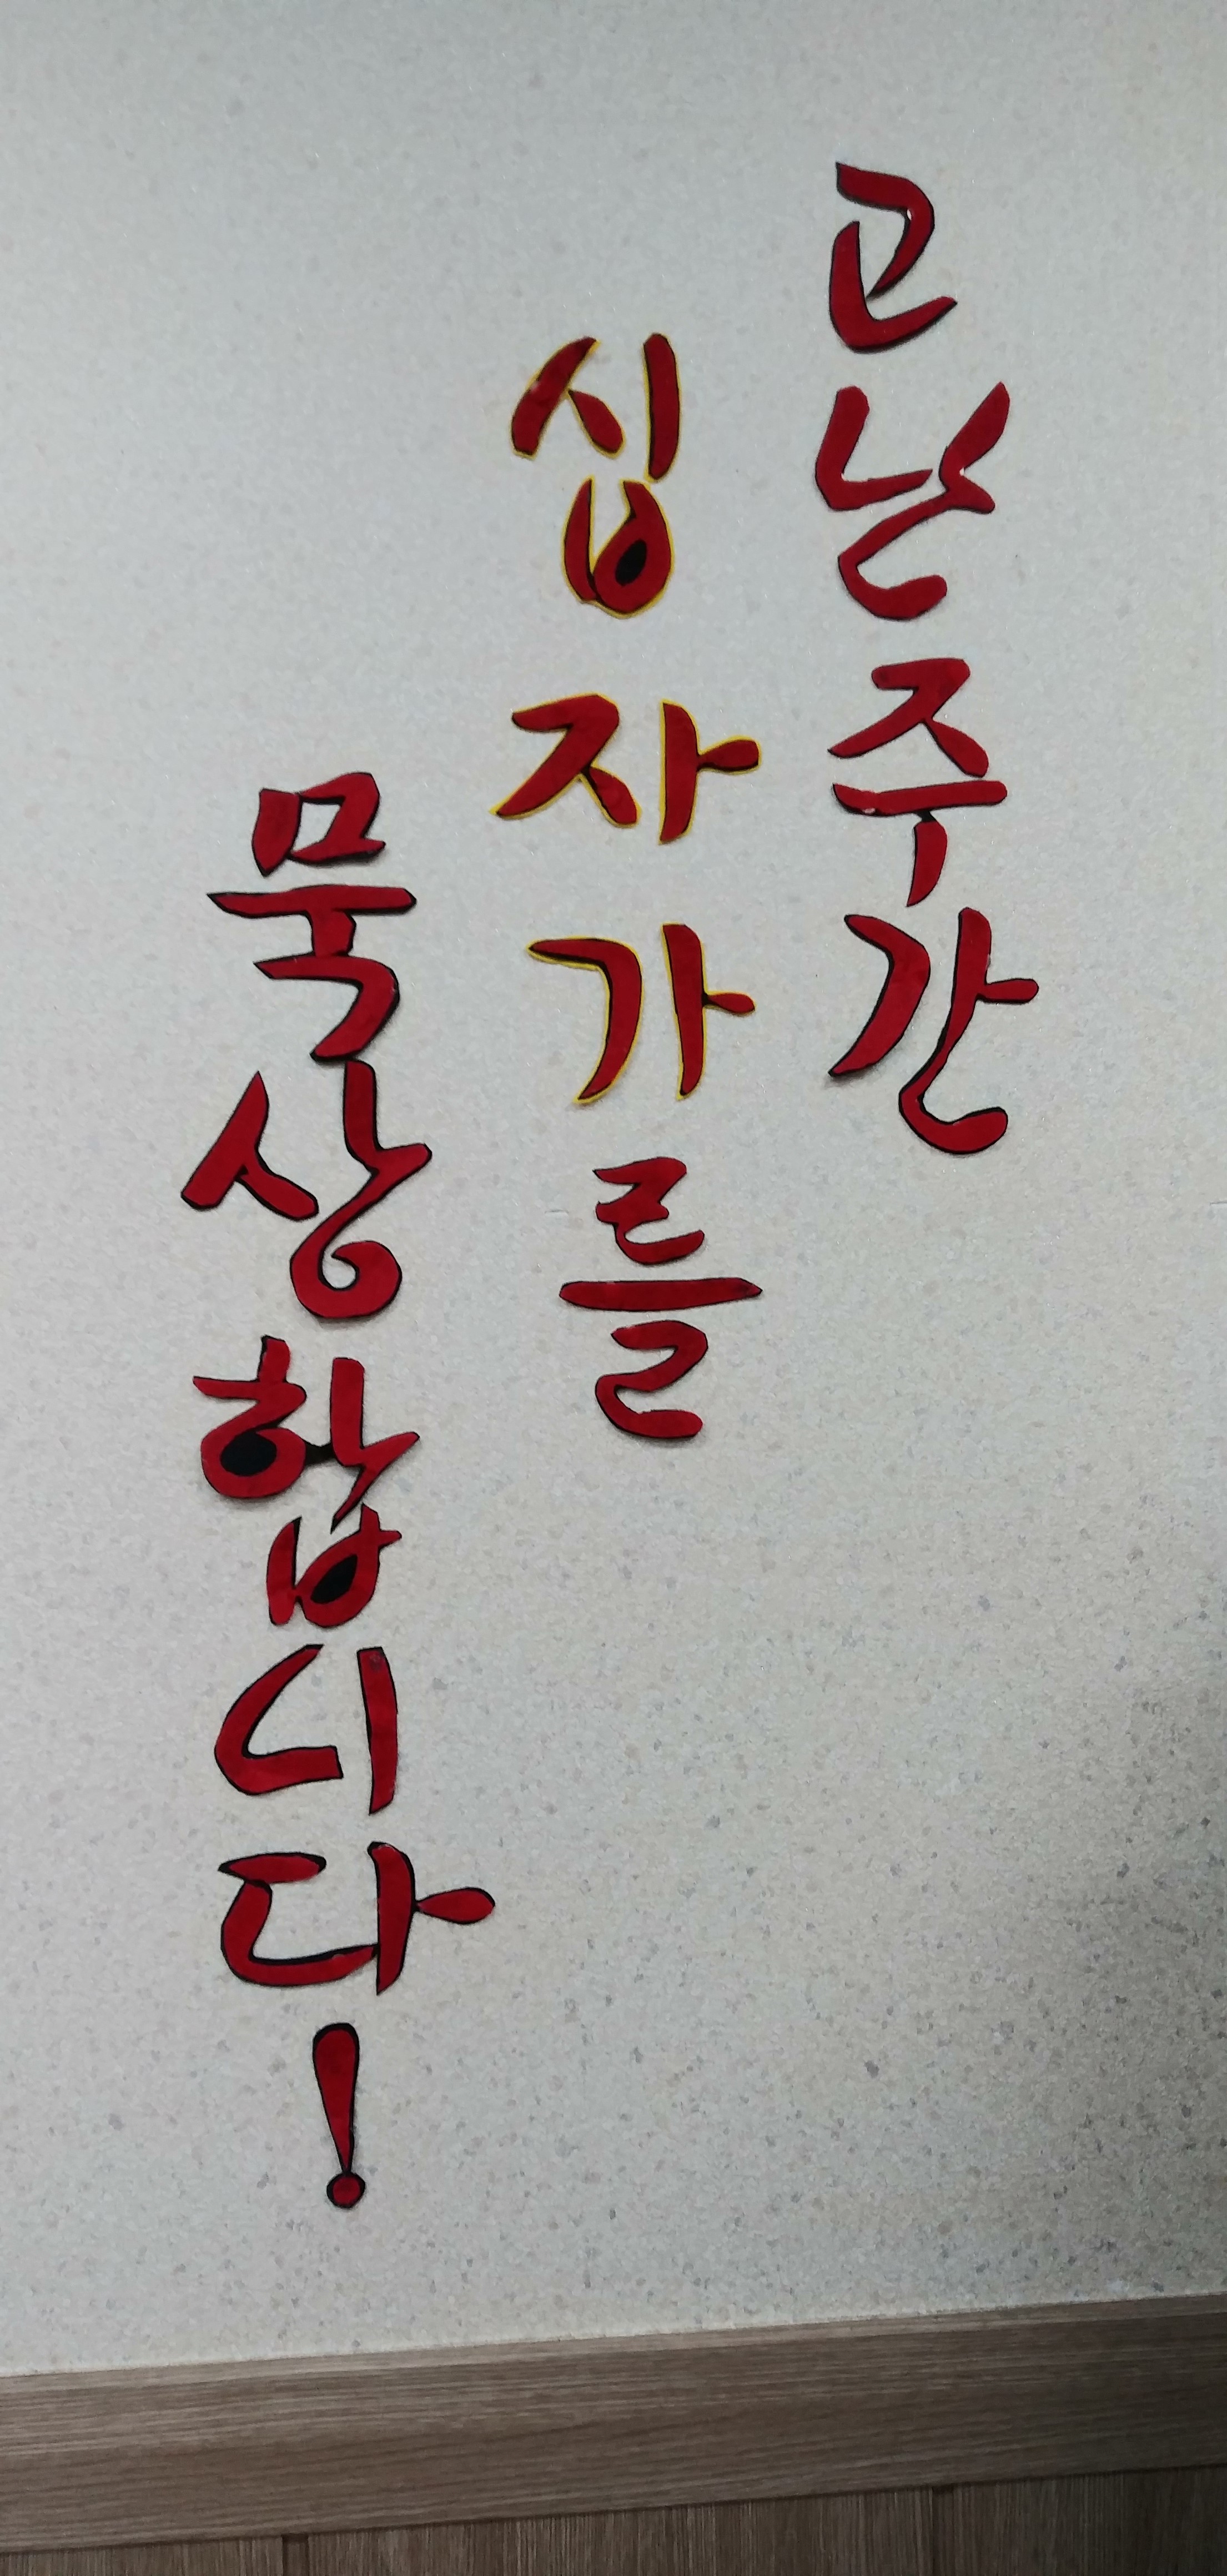 고난주간
십자가를
묵상합니다!